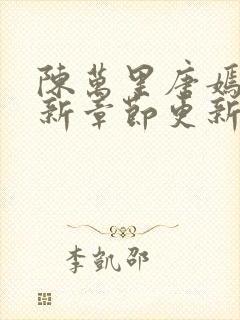 陳萬里唐嫣
新章節更新
李凱邵